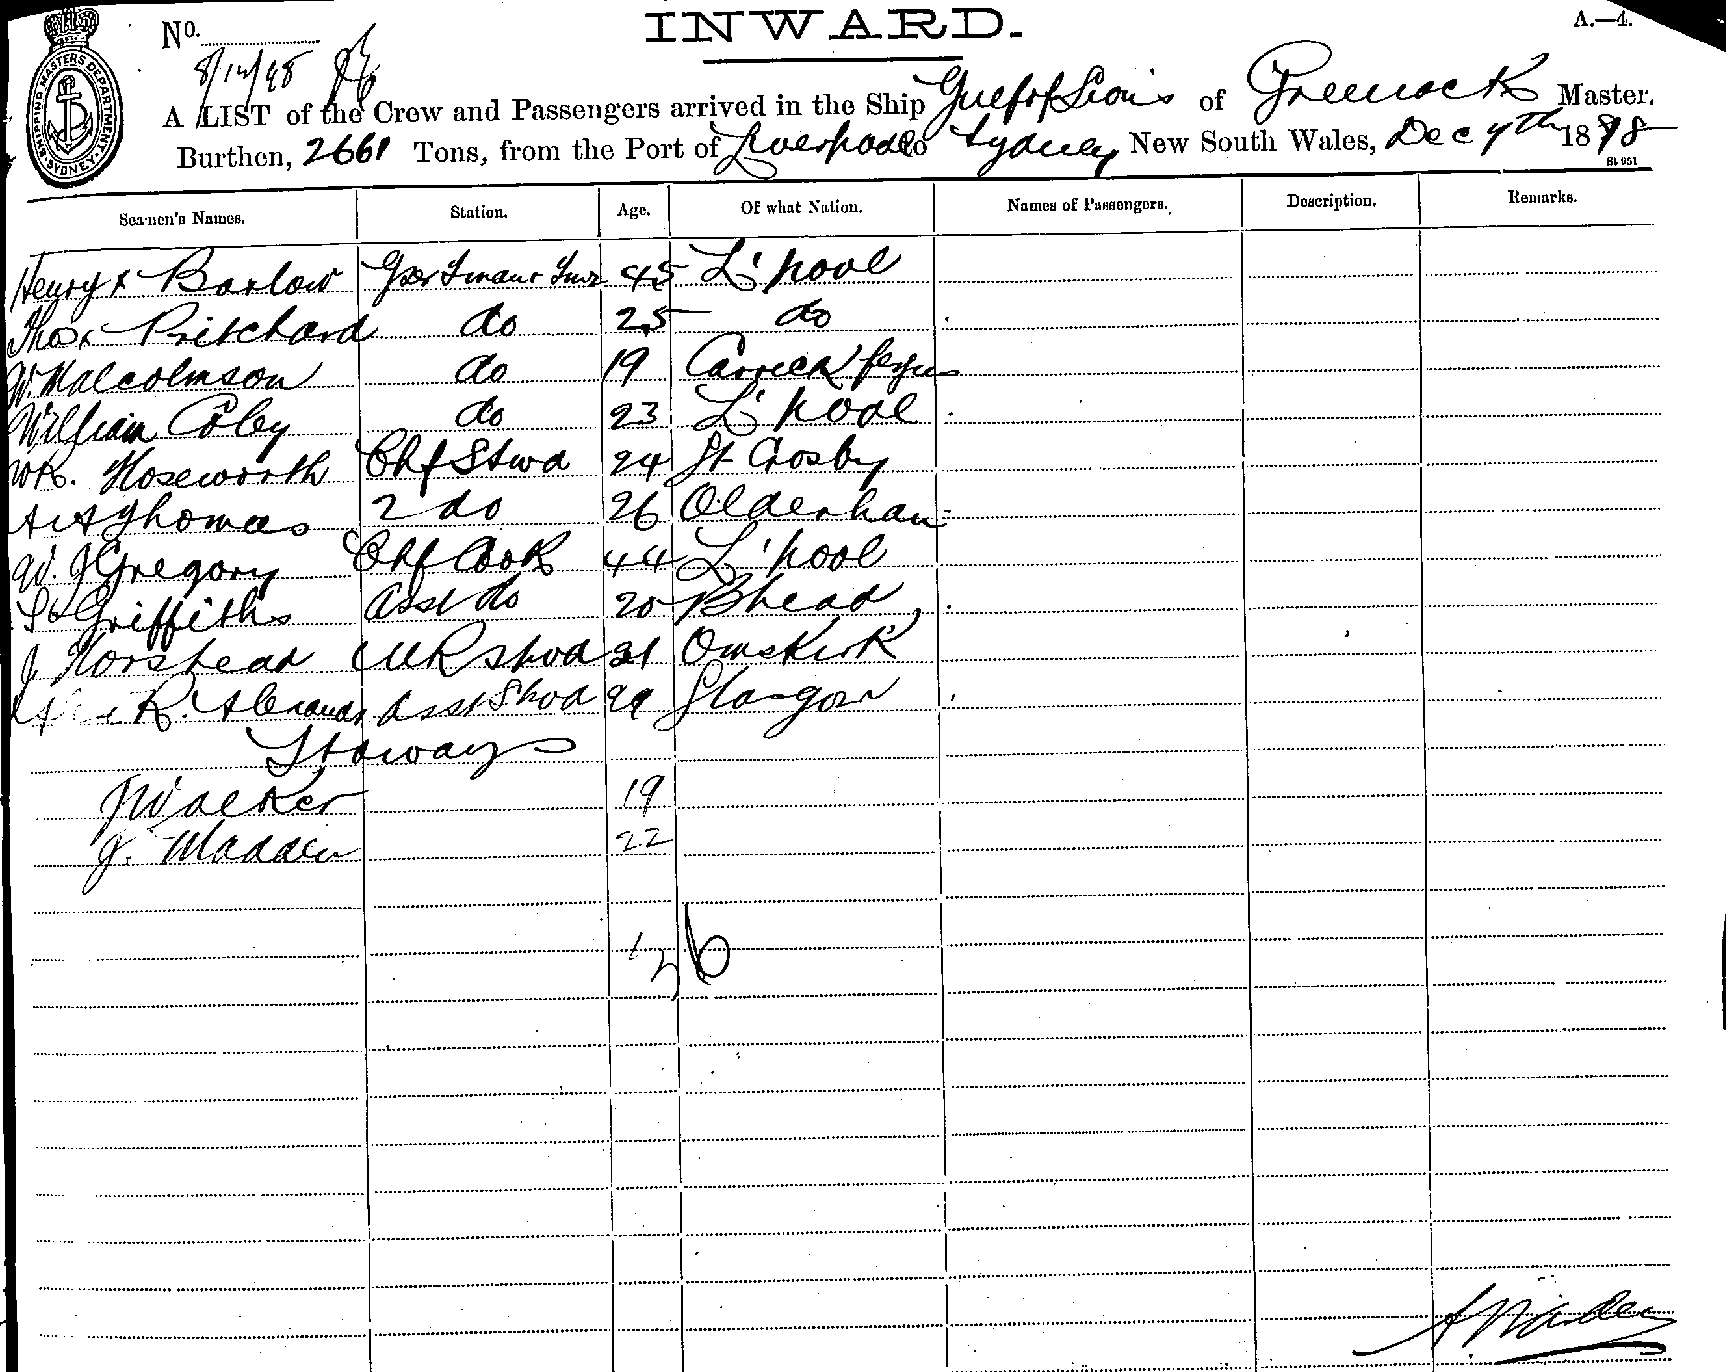 INWARD.
A.—4.
No.
8/12/98
SHIPPING MASTERS DEPARTMENT SYDNEY
A LIST of the Crew and Passengers arrived in the Ship Gulf of Lions of Greenock Master.
Burthen, 2661 Tons, from the Port of Liverpool to Sydney New South Wales, Dec 7th 1898
Seamen's Names. Station. Age. Of what Nation. Names of Passengers. Description. Remarks.
Henry x Barlow 45 L'pool
Thos x Pritchard do 25 do
W. Malcolmson do 19 Carrickfergus
William Coley do 23 L'pool
Wk. Hoseworth Chf Stwd 24 Gt Crosby
A A Thomas 2 do 26 Olderham
W. J Gregory Chf Cook 44 L'pool
Griffiths Asst do 20 Bhead
J Horshead Stwd 21 Omskirk
R. Asst Stwd Glasgow
Stoways
J Walker 19
J. Madden 22